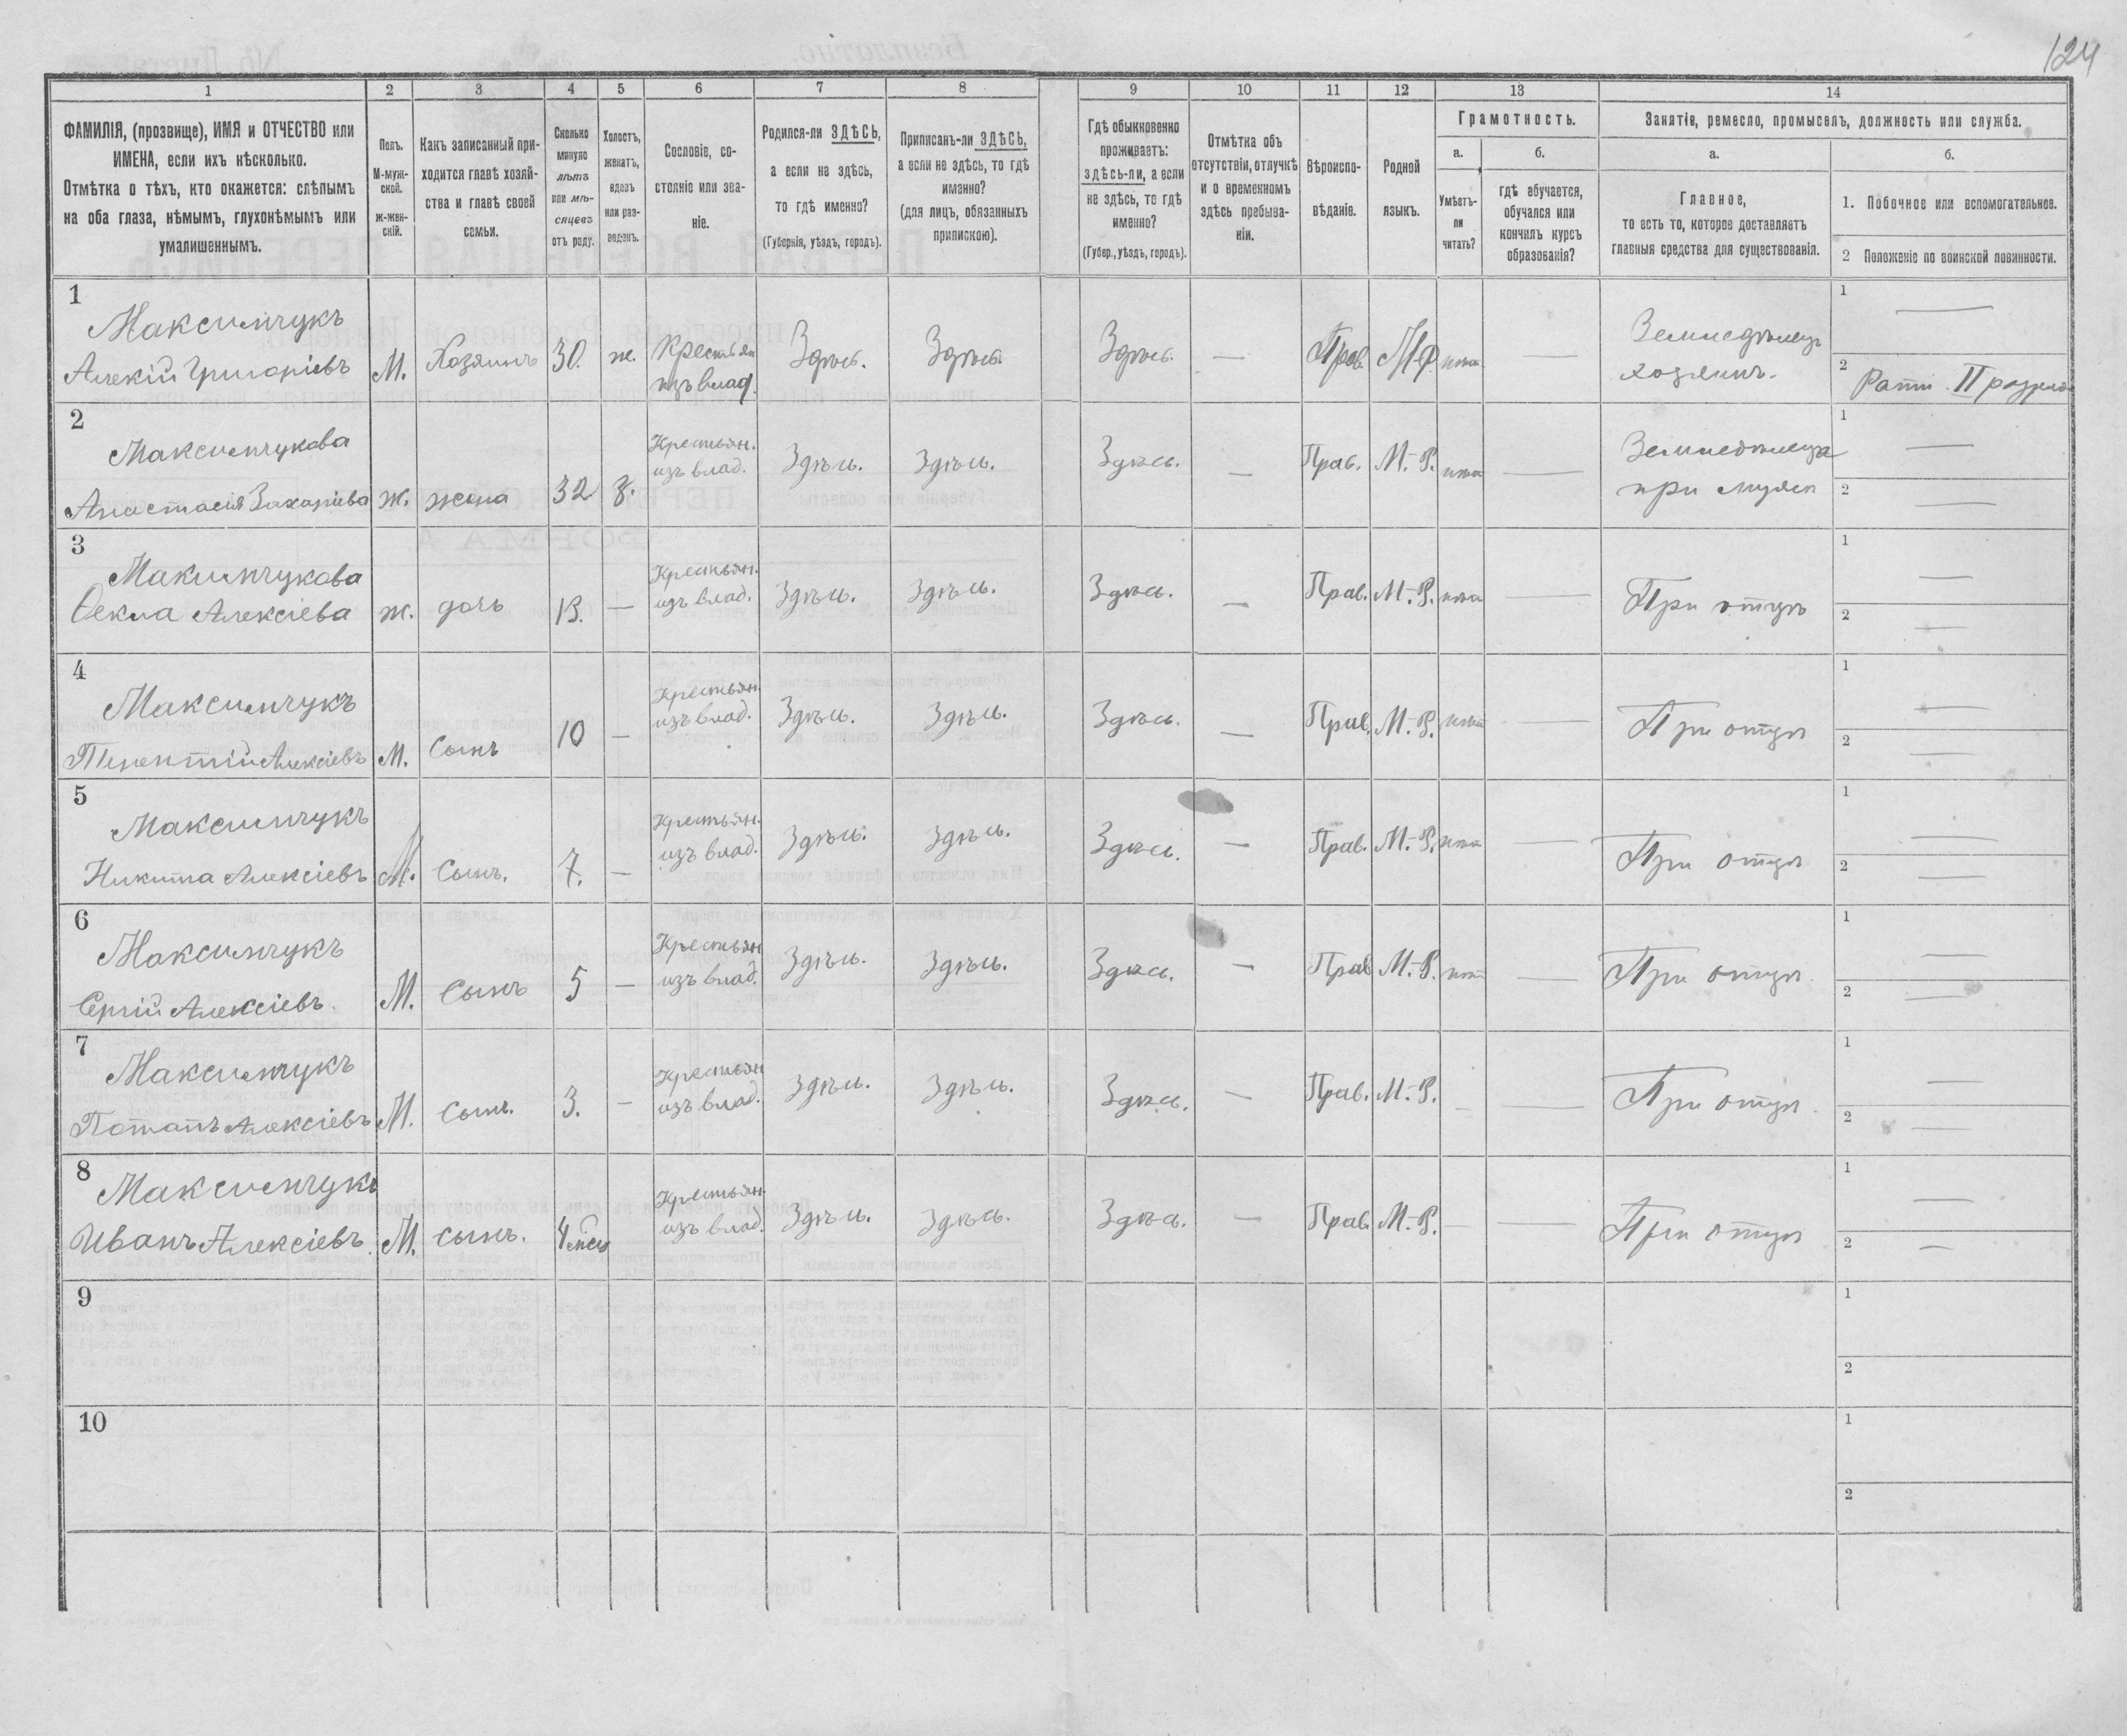 124
1 2 3 4 5 6 7 8 9 10 11 12 13 14
ФАМИЛІЯ, (прозвище), ИМЯ и ОТЧЕСТВО или
ИМЕНА, если ихъ нѣсколько.
Отмѣтка о тѣхъ, кто окажется: слѣпымъ
на оба глаза, нѣмымъ, глухонѣмымъ или
умалишеннымъ.
Полъ.
М-муж-
ской.
ж-жен-
скій.
Какъ записанный при-
ходится главѣ хозяй-
ства и главѣ своей
семьи.
Сколько
минуло
лѣтъ
или мѣ-
сяцевъ
отъ роду.
Холостъ,
женатъ,
вдовъ
или раз-
веденъ.
Сословіе, со-
стояніе или зва-
ніе.
Родился-ли ЗДѢСЬ,
а если не здѣсь,
то гдѣ именно?
(Губернія, уѣздъ, городъ).
Приписанъ-ли ЗДѢСЬ,
а если не здѣсь, то гдѣ
именно?
(для лицъ, обязанныхъ
припискою).
Гдѣ обыкновенно
проживаетъ:
здѣсь-ли, а если
не здѣсь, то гдѣ
именно?
(Губер., уѣздъ, городъ).
Отмѣтка объ
отсутствіи, отлучкѣ
и о временномъ
здѣсь пребыва-
ніи.
Вѣроиспо-
вѣданіе.
Родной
языкъ.
Грамотность.
а.
Умѣетъ-
ли
читать?
б.
гдѣ обучается,
обучался или
кончилъ курсъ
образованія?
Занятіе, ремесло, промыселъ, должность или служба.
а.
Главное,
то есть то, которое доставляетъ
главныя средства для существованія.
б.
1. Побочное или вспомогательное.
2 Положеніе по воинской повинности.
1
Максимчукъ
Алекій Григоріевъ М. Хозяинъ 30. ж. Крестьян
изъ влад. Здѣсь. Здѣсь. Здѣсь. — Прав. М-Р — Земледѣлец
хозяинъ.
1 —
2 Ратн. II разряд
2
Максимчукова
Анастасія Захаріева ж. жена 32 з. Крестьян.
изъ влад. Здѣсь. Здѣсь. Здѣсь. — Прав. М.-Р. —
при мужѣ
1 —
2 —
3
Максимчукова
Ѳекла Алексіева ж. дочь 13. — Крестьян.
изъ влад. Здѣсь. Здѣсь. Здѣсь. — Прав. М.-Р. — При отцѣ
1 —
2 —
4
Максимчукъ
Терентій Алексіевъ М. Сынъ 10 — Крестьян.
изъ влад. Здѣсь. Здѣсь. Здѣсь. — Прав. М.-Р. — При отцѣ
1 —
2 —
5
Максимчукъ
Никита Алексіевъ М. Сынъ. 7. — Крестьян.
изъ влад. Здѣсь. Здѣсь. Здѣсь. — Прав. М.-Р. — При отцѣ
1 —
2 —
6
Максимчукъ
Сергій Алексіевъ. М. Сынъ 5 — Крестьян
изъ влад. Здѣсь. Здѣсь. Здѣсь. — Прав М.-Р. — При отцѣ.
1 —
2 —
7
Максимчукъ
Потапъ Алексіевъ М. Сынъ. 3. — Крестьян
изъ влад. Здѣсь. Здѣсь. Здѣсь. — Прав. М.-Р. — — При отцѣ.
1 —
2 —
8
Максимчукъ
Иванъ Алексіевъ. М. сынъ. 4 мѣс. Крестьян.
изъ влад. Здѣсь. Здѣсь. Здѣсь. — Прав. М.-Р. — — При отцѣ
1 —
2 —
9
1
2
10
1
2